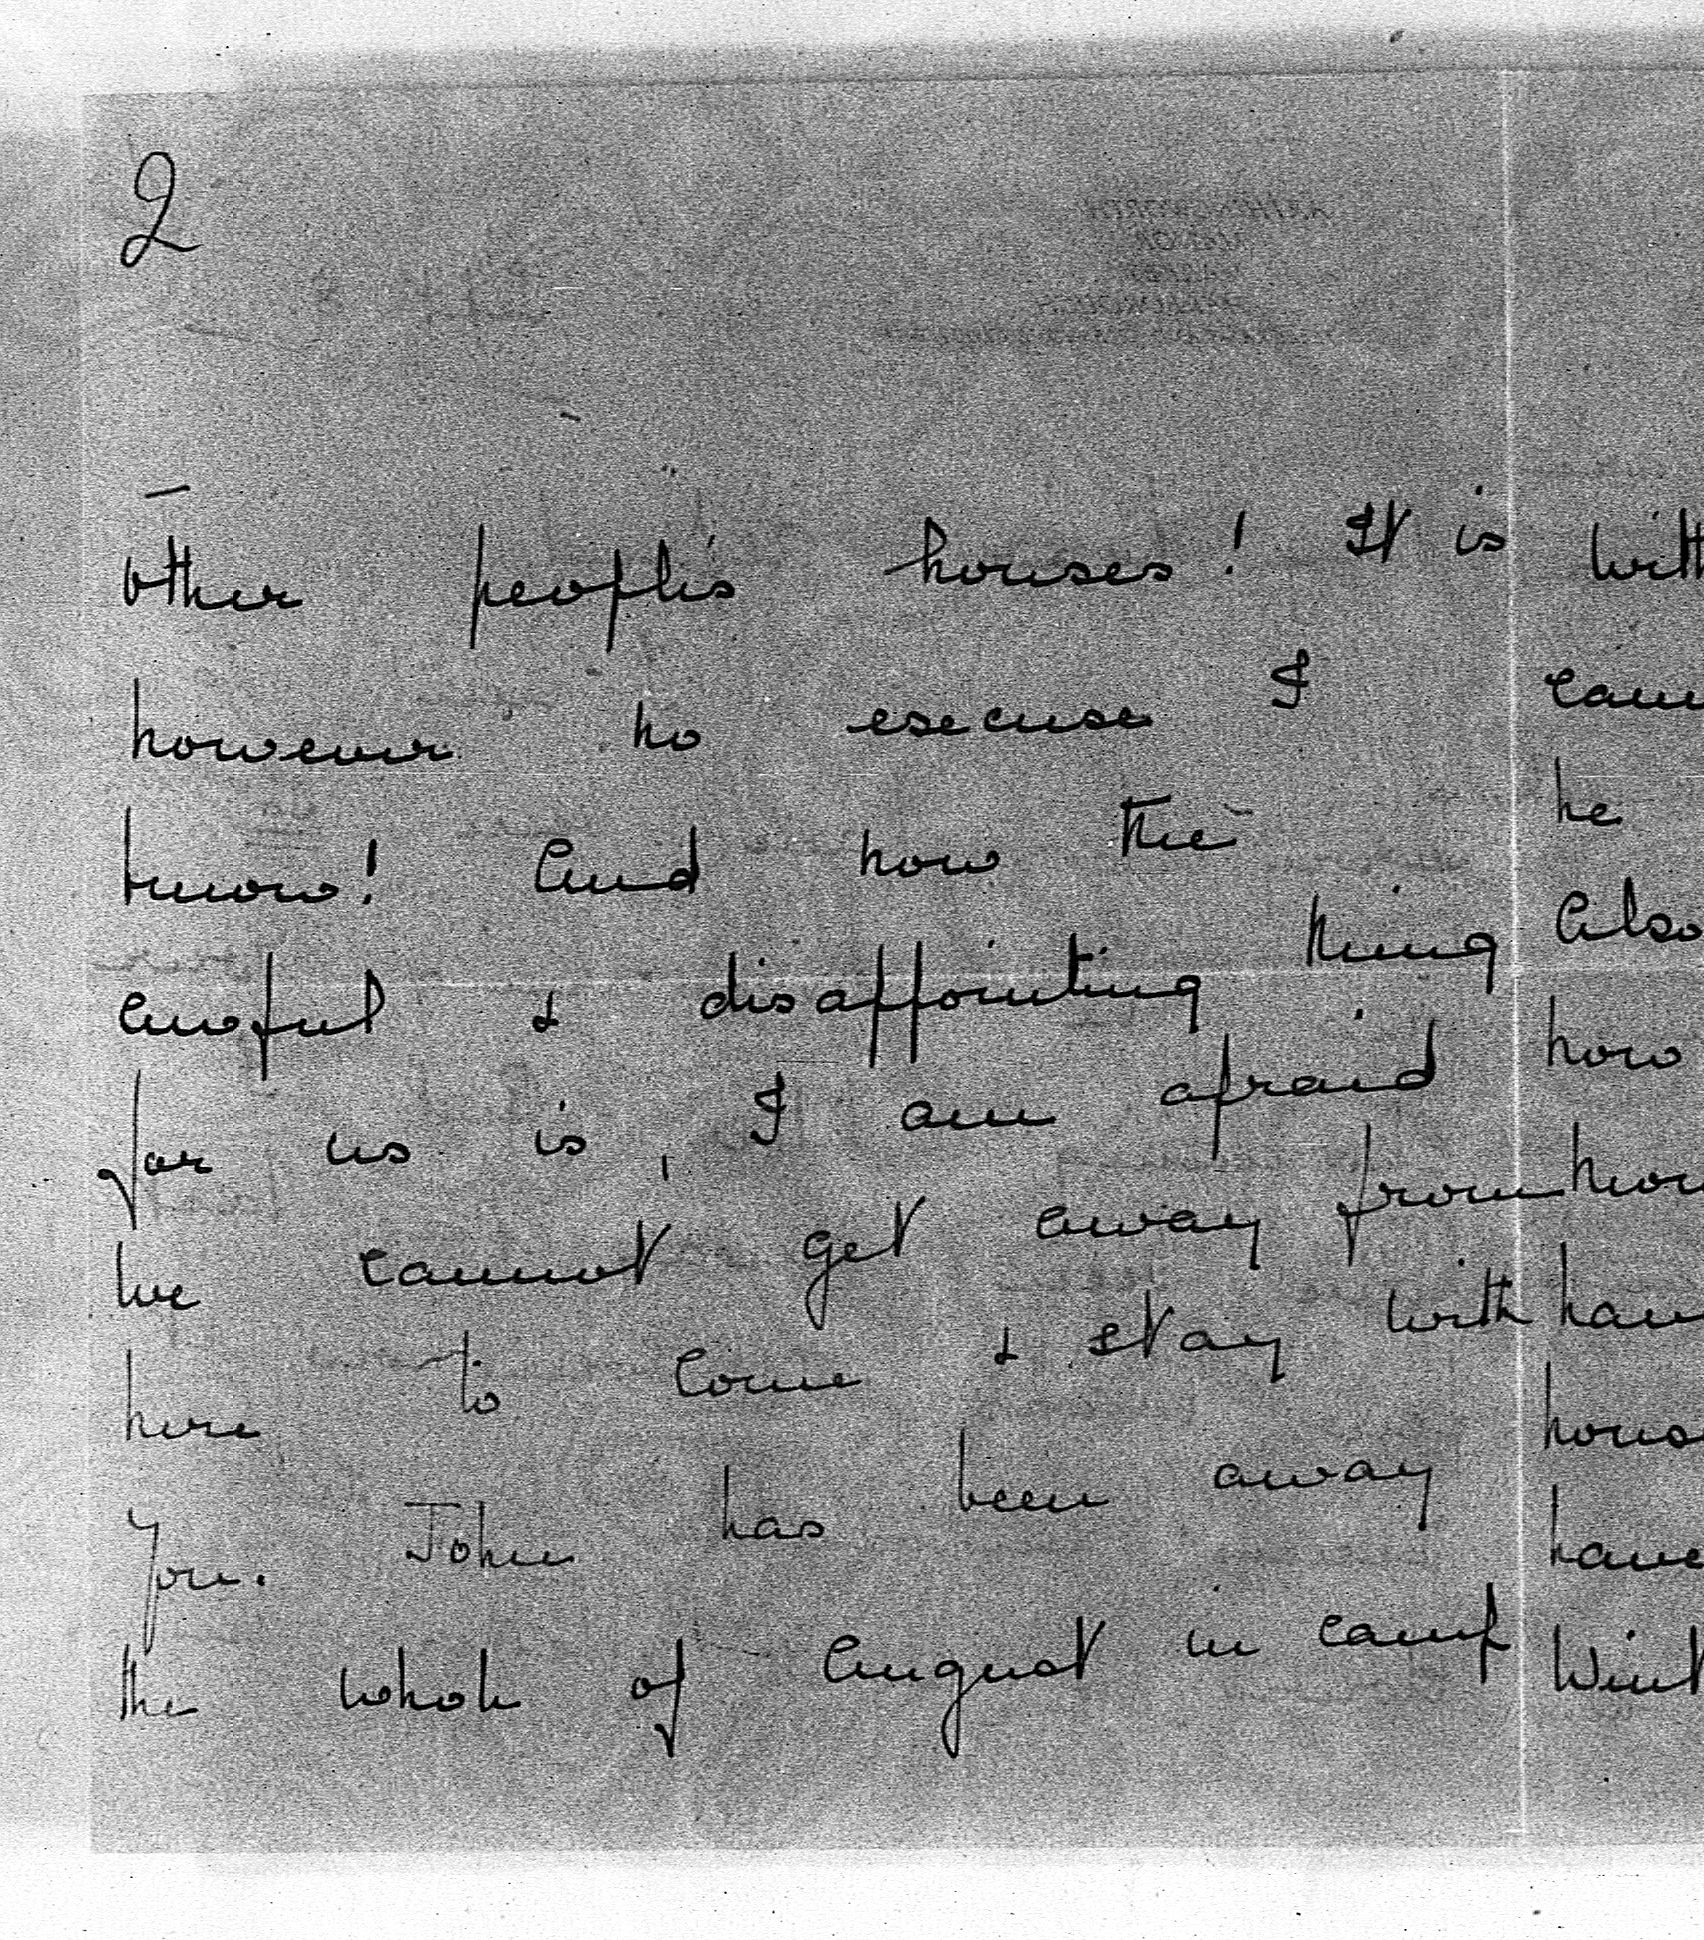 2
other people's houses! It is
however no excuse I
know! And now the
awful & disappointing thing
for us is, I am afraid
we cannot get away from
here to come & stay with
you. John has been away
the whole of August in camp
with
he
Also
how
have
have